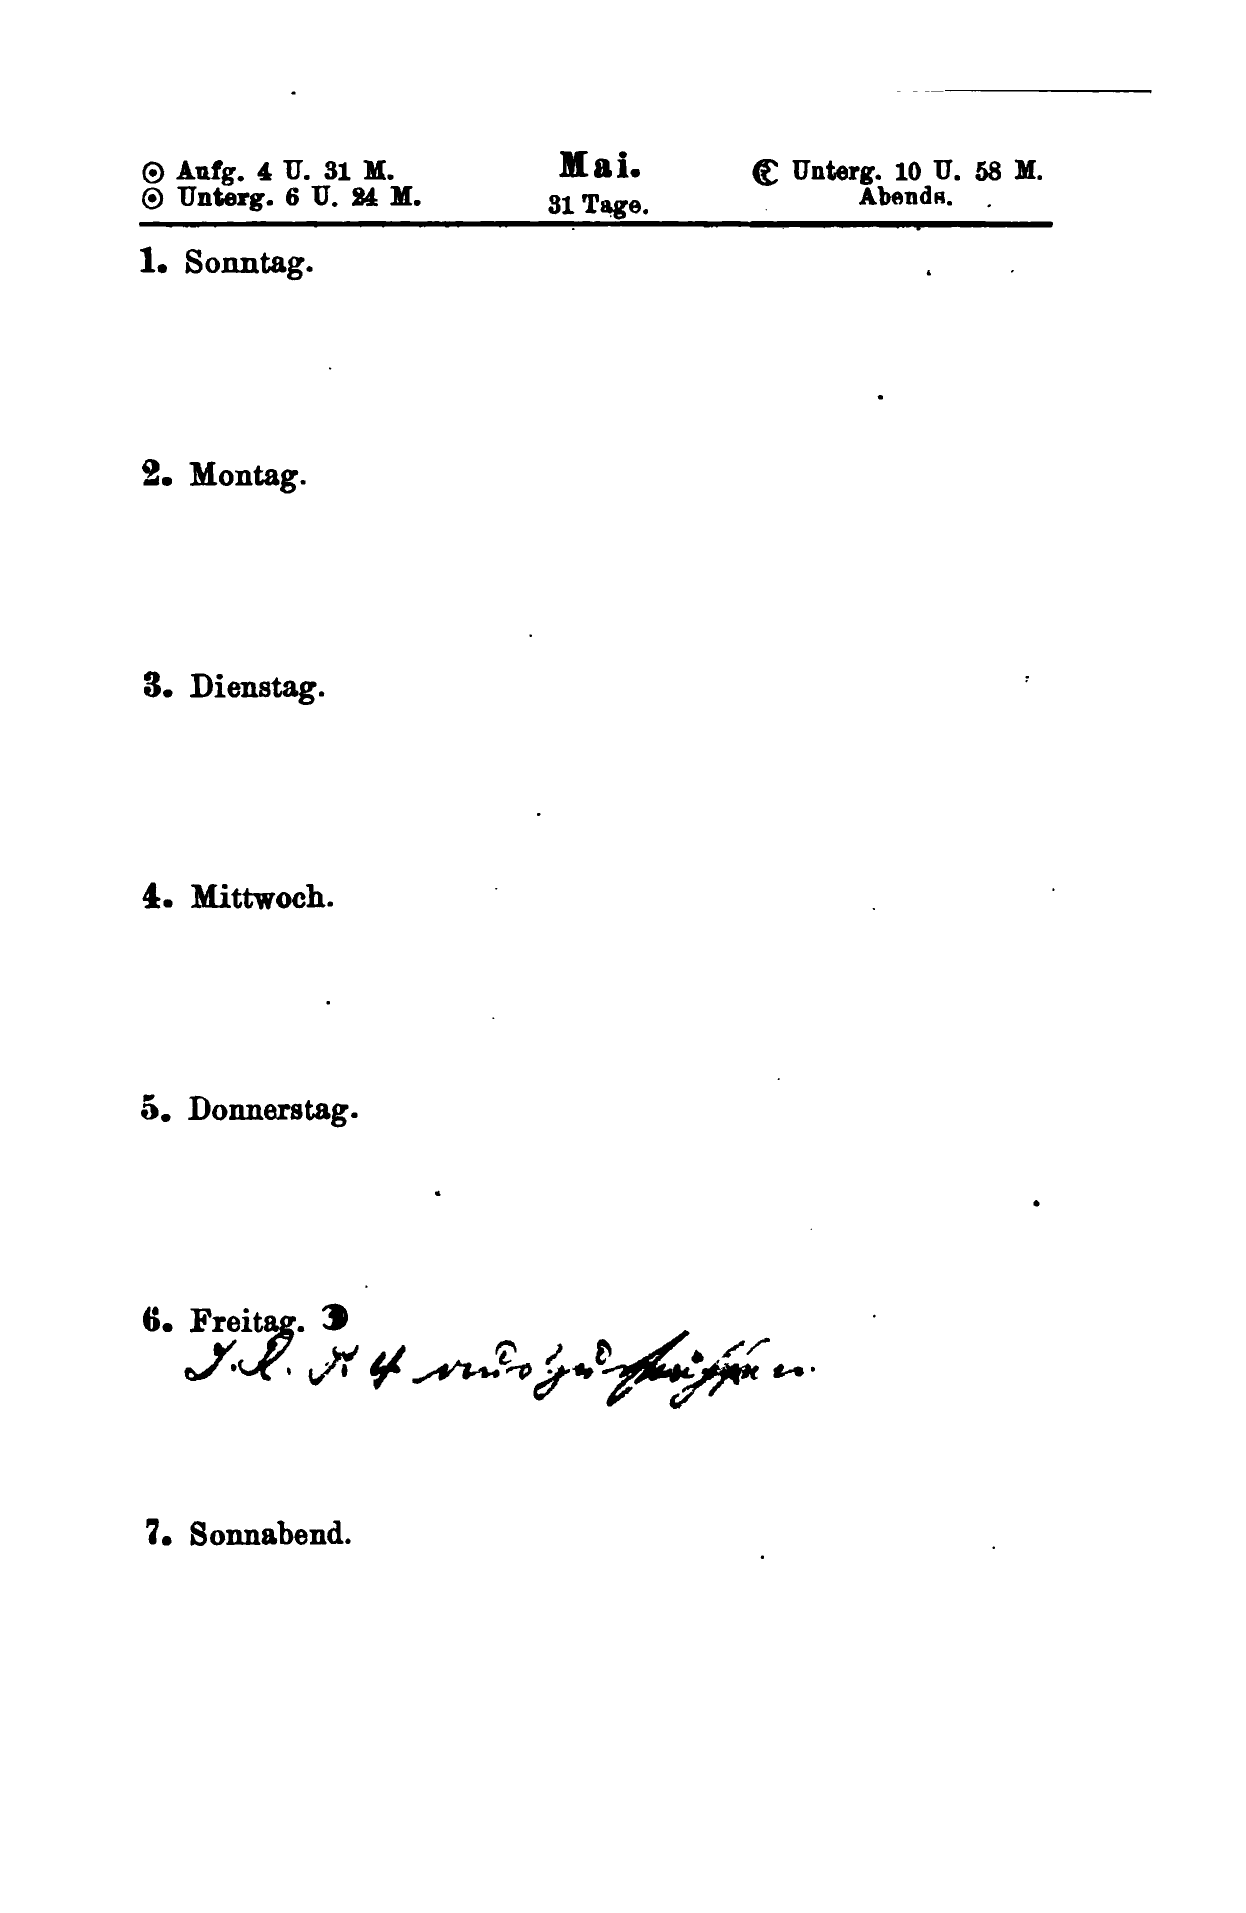 ☉ Aufg. 4 U. 31 M.
☉ Unterg. 6 U. 24 M.
Mai.
31 Tage.
☾ Unterg. 10 U. 58 M.
Abends.
1. Sonntag.
2. Montag.
3. Dienstag.
4. Mittwoch.
5. Donnerstag.
6. Freitag. ☽
7. Sonnabend.